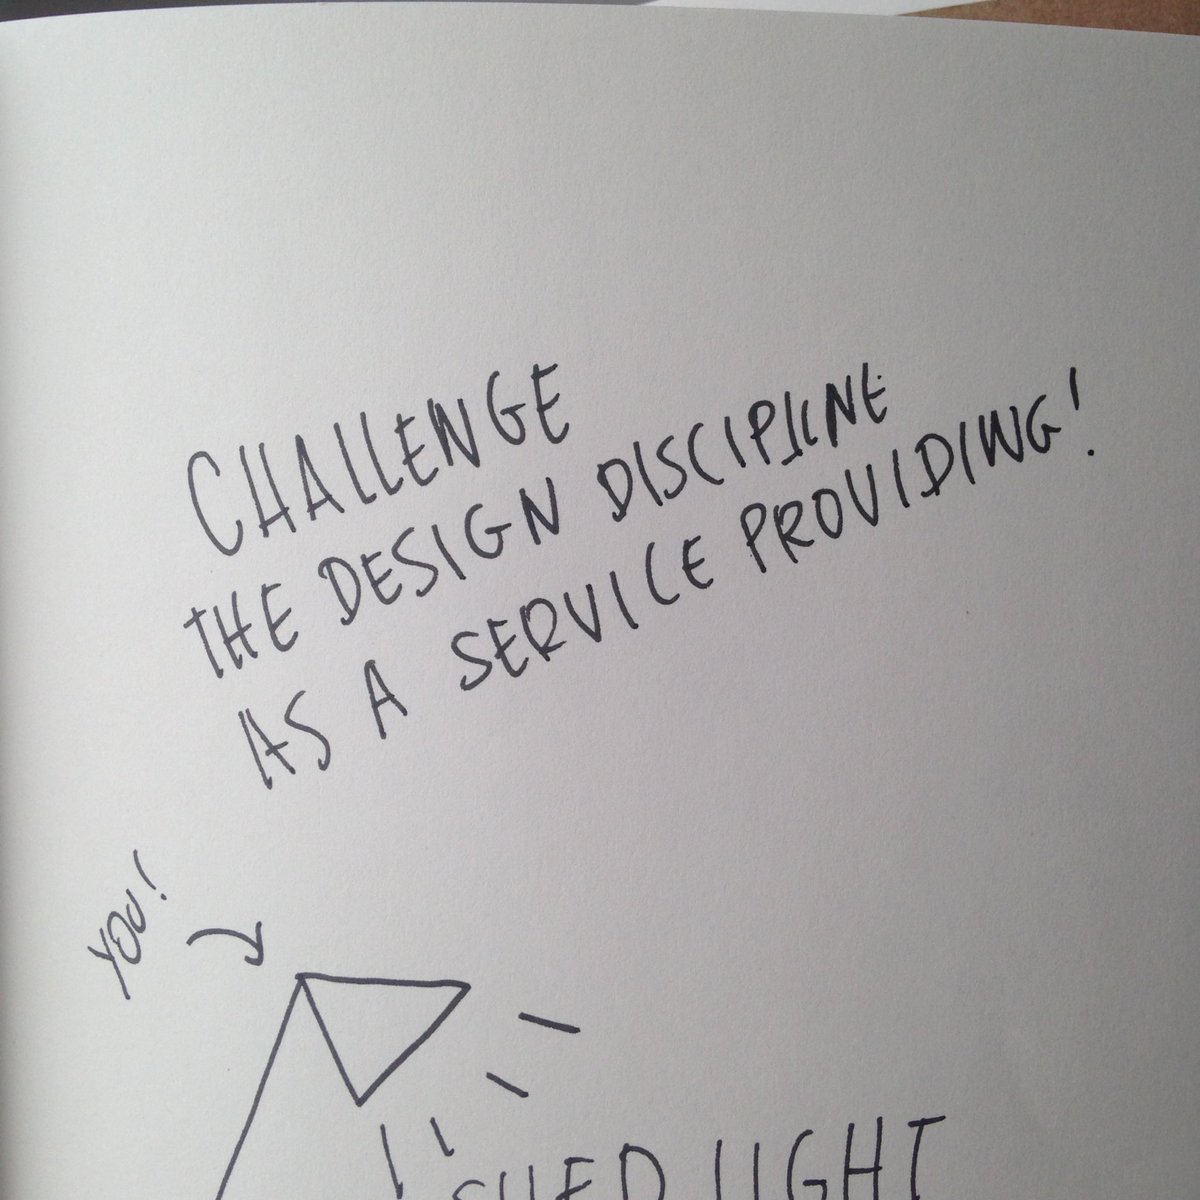 CHALLENGE
THE DESIGN DISCIPLINE
AS A SERVICE PROVIDING!
YOU!
SHED LIGHT